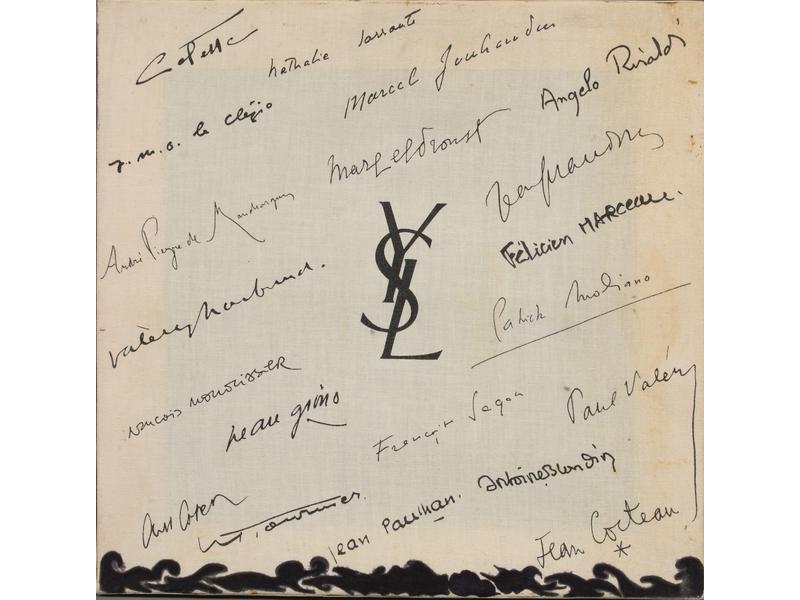 Colette
nathalie sarraute
Marcel Jouhandeau
Angelo Rinaldi
j. m. g. le clézio
Marcel Proust
André Pieyre de Mandiargues
YSL
Félicien MARCEAU.
valery larbaud.
Patrick Modiano
jean giono
Françoise Sagan
Paul Valéry
Antoine Blondin
M. Tournier.
jean Paulhan.
Jean Cocteau
*